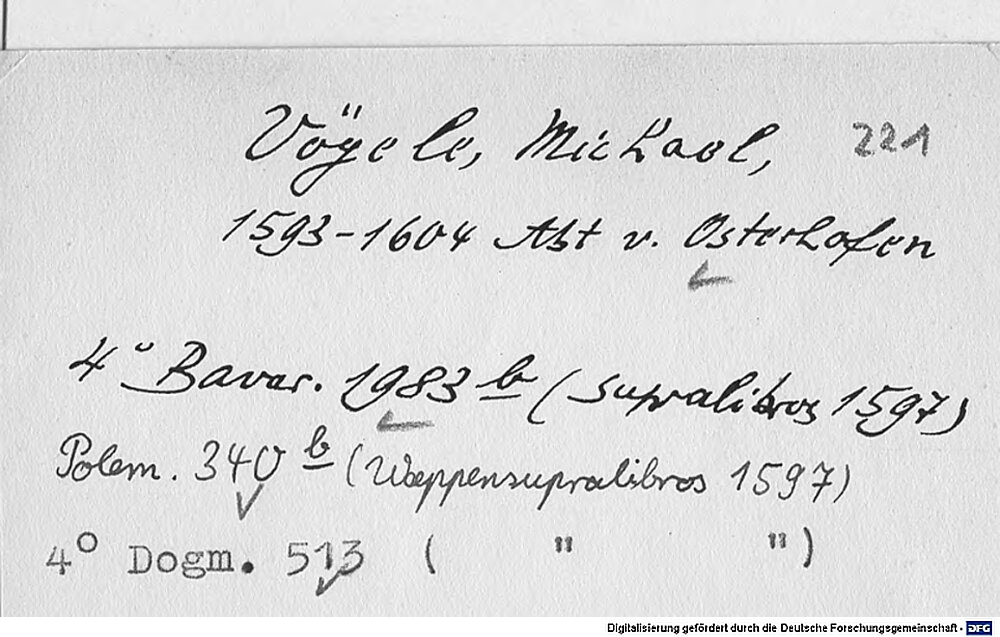 Vögele, Michael, 221
1593-1604 Abt v. Osterhofen
4° Bavar. 1983 b (Supralibros 1597)
Polem. 340 b (Wappensupralibros 1597)
4° Dogm. 513 ( " ")
Digitalisierung gefördert durch die Deutsche Forschungsgemeinschaft - DFG